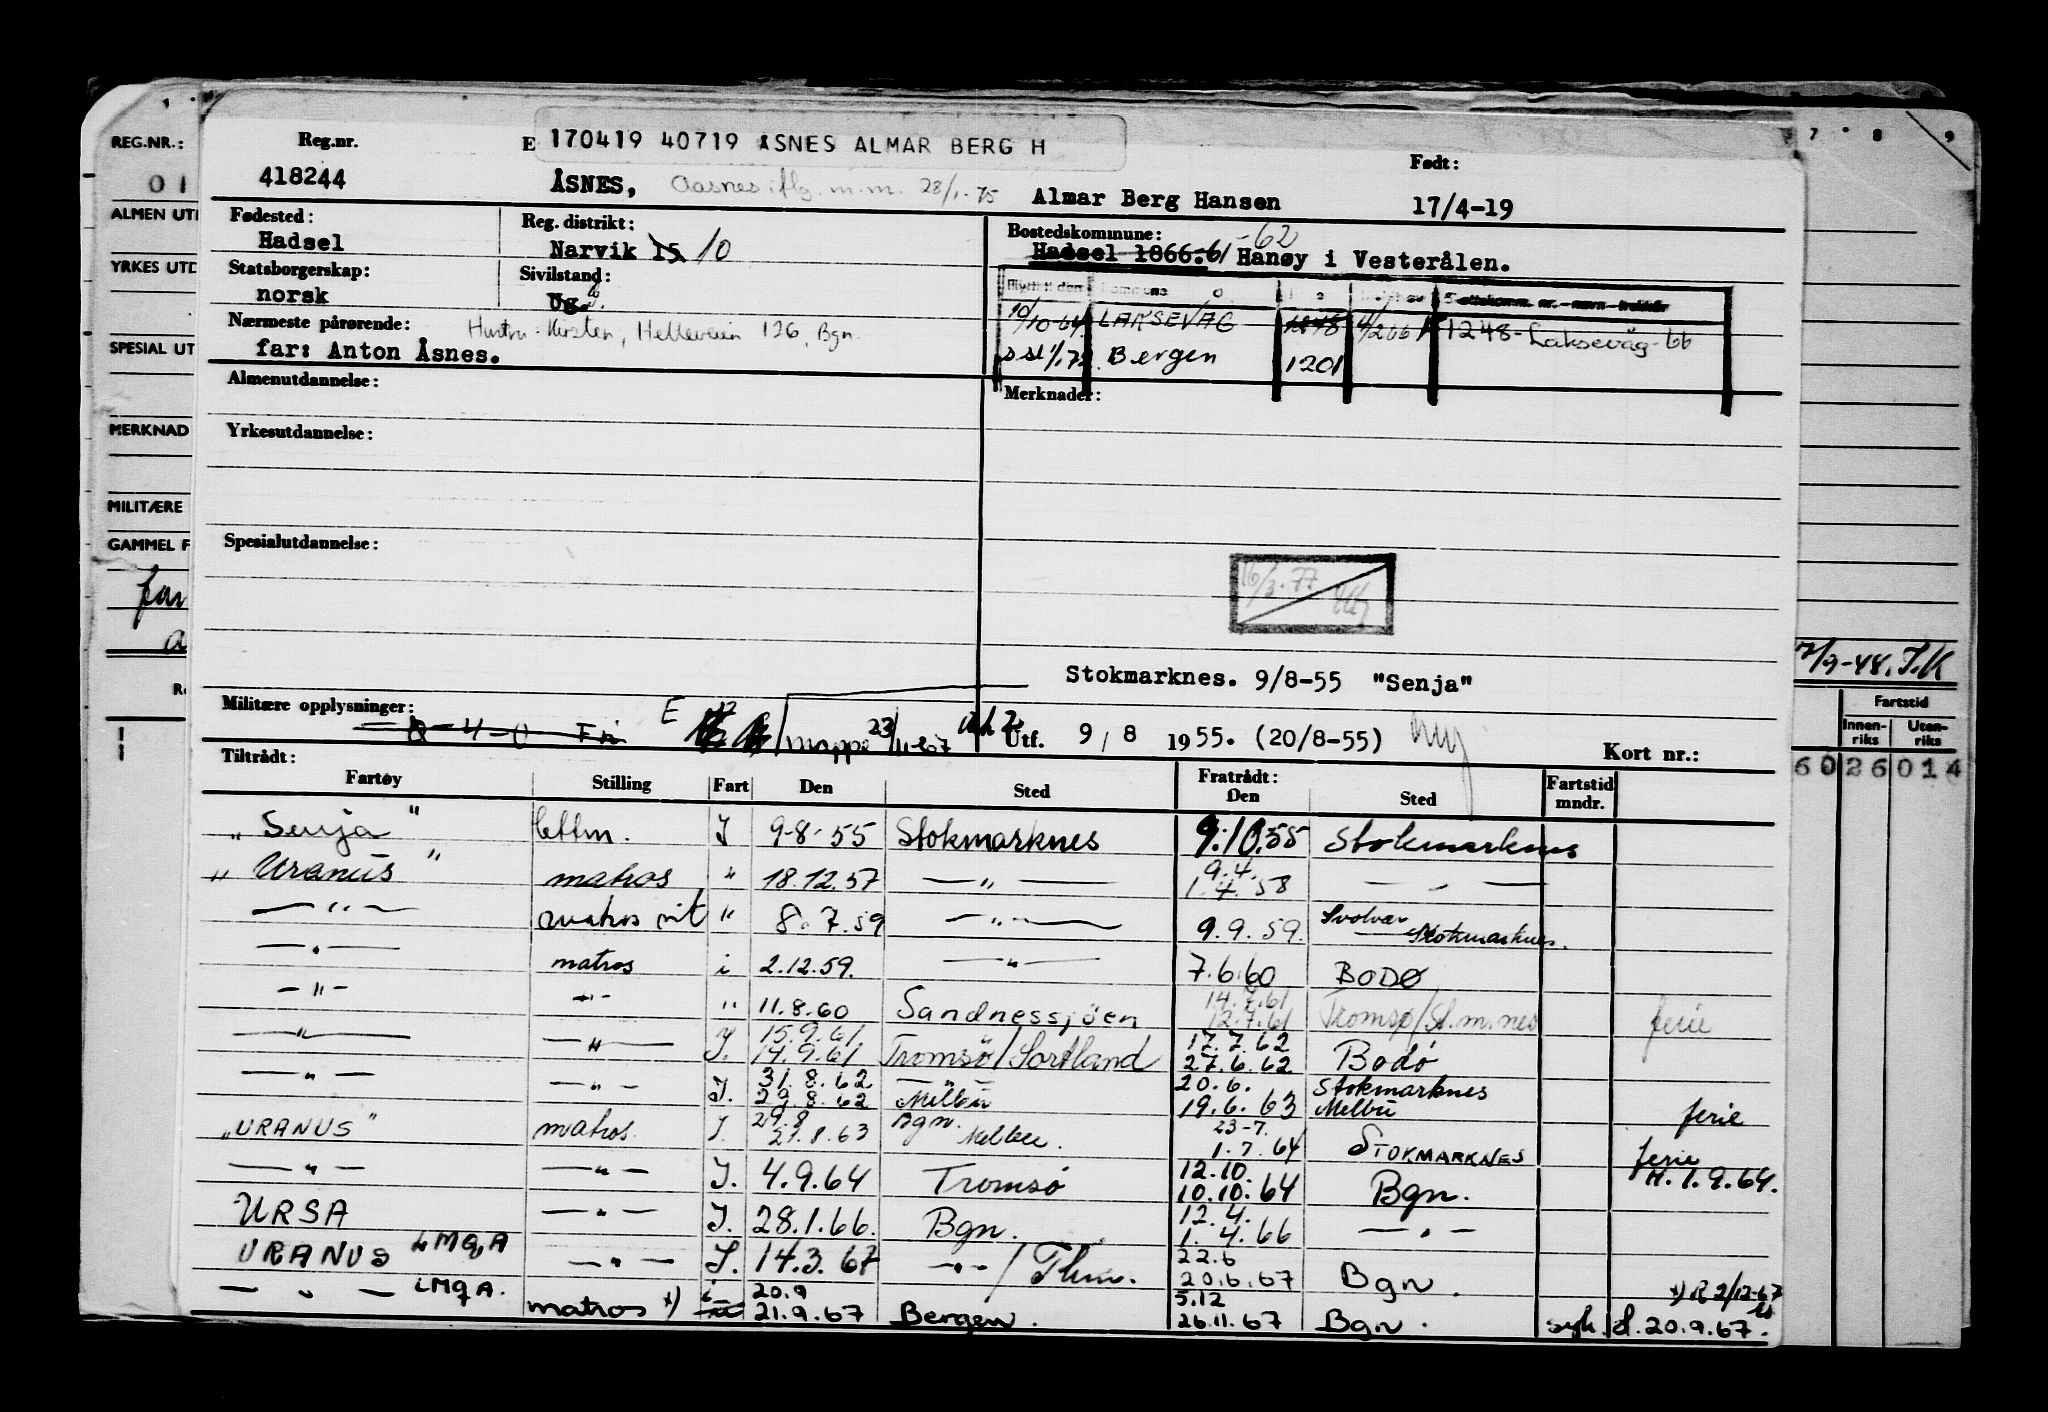 REG.NR.:
01
ALMEN UT
YRKES UTD
SPESIAL UT
MERKNAD
MILITÆRE
GAMMEL F
7 8 9
Reg.nr.
E 170419 40719 ÅSNES ALMAR BERG H
Født:
418244
ÅSNES, Aasnes iflg. m.m. 28/1-75 Almar Berg Hansen 17/4-19
Fødested: Reg. distrikt: Bostedskommune: -62
Hadsel Narvik 15 10 Hadsel 1866.-61 Hanøy i Vesterålen.
Statsborgerskap: Sivilstand:
norsk Ug.
10/10-64 LAKSEVÅG 1248 1248-Laksevåg-66
Nærmeste pårørende: Hustru-Kirsten, Helleveien 126, Bgn.
far: Anton Åsnes.
Bergen 1201
Almenutdannelse: Merknader:
Yrkesutdannelse:
Spesialutdannelse:
16/3-77
Stokmarknes. 9/8-55 "Senja"
Militære opplysninger: E
mappe 23/11-67
Utf. 9/8 1955. (20/8-55) Kort nr.:
7/9-48. T.K
Fartstid
Innen-riks Uten-riks
6026014
Tiltrådt: Fratrådt:
Fartøy Stilling Fart Den Sted Den Sted Fartstid mndr.
"Senja" lettm. I 9-8-55 Stokmarknes 9.10.55 Stokmarknes
"Uranus" matros " 18.12.57 — " — 9.4. 1.4.58 — " —
— " — matros vit " 8.7.59 — " — 9.9.59. Svolvær Stokmarknes.
— " — matros i 2.12.59. — " — 7.6.60 BODØ
— " — — " — " 11.8.60 Sandnessjøen 14.7.61 12.7.61 Tromsø/St.m.nes ferie
— " — — " — I. 15.9.61 14.9.61 Tromsø/Sortland 17.7.62 27.6.62 Bodø
— " — — " — I. 31.8.62 29.8.62 — " — Melbu 20.6. 19.6.63 Stokmarknes Melbu ferie
"URANUS" matros. I. 29.8 27.8.63 Bgn. Melbu. 23-7. 1.7.64 STOKMARKNES ferie
— " — — " — I. 4.9.64 Tromsø 12.10. 10.10.64 Bgn. H. 1.9.64.
URSA — " — I. 28.1.66. Bgn. 12.4. 1.4.66 — " —
URANUS LMQA — " — I. 14.3.67 — " — / Thm. 22.6 20.6.67 Bgn.
— " — LMQA. matros x) i 20.9 21.9.67 Bergen. 5.12 26.11.67 Bgn. syk. d. 20.9.67.
x) R 2/12-67